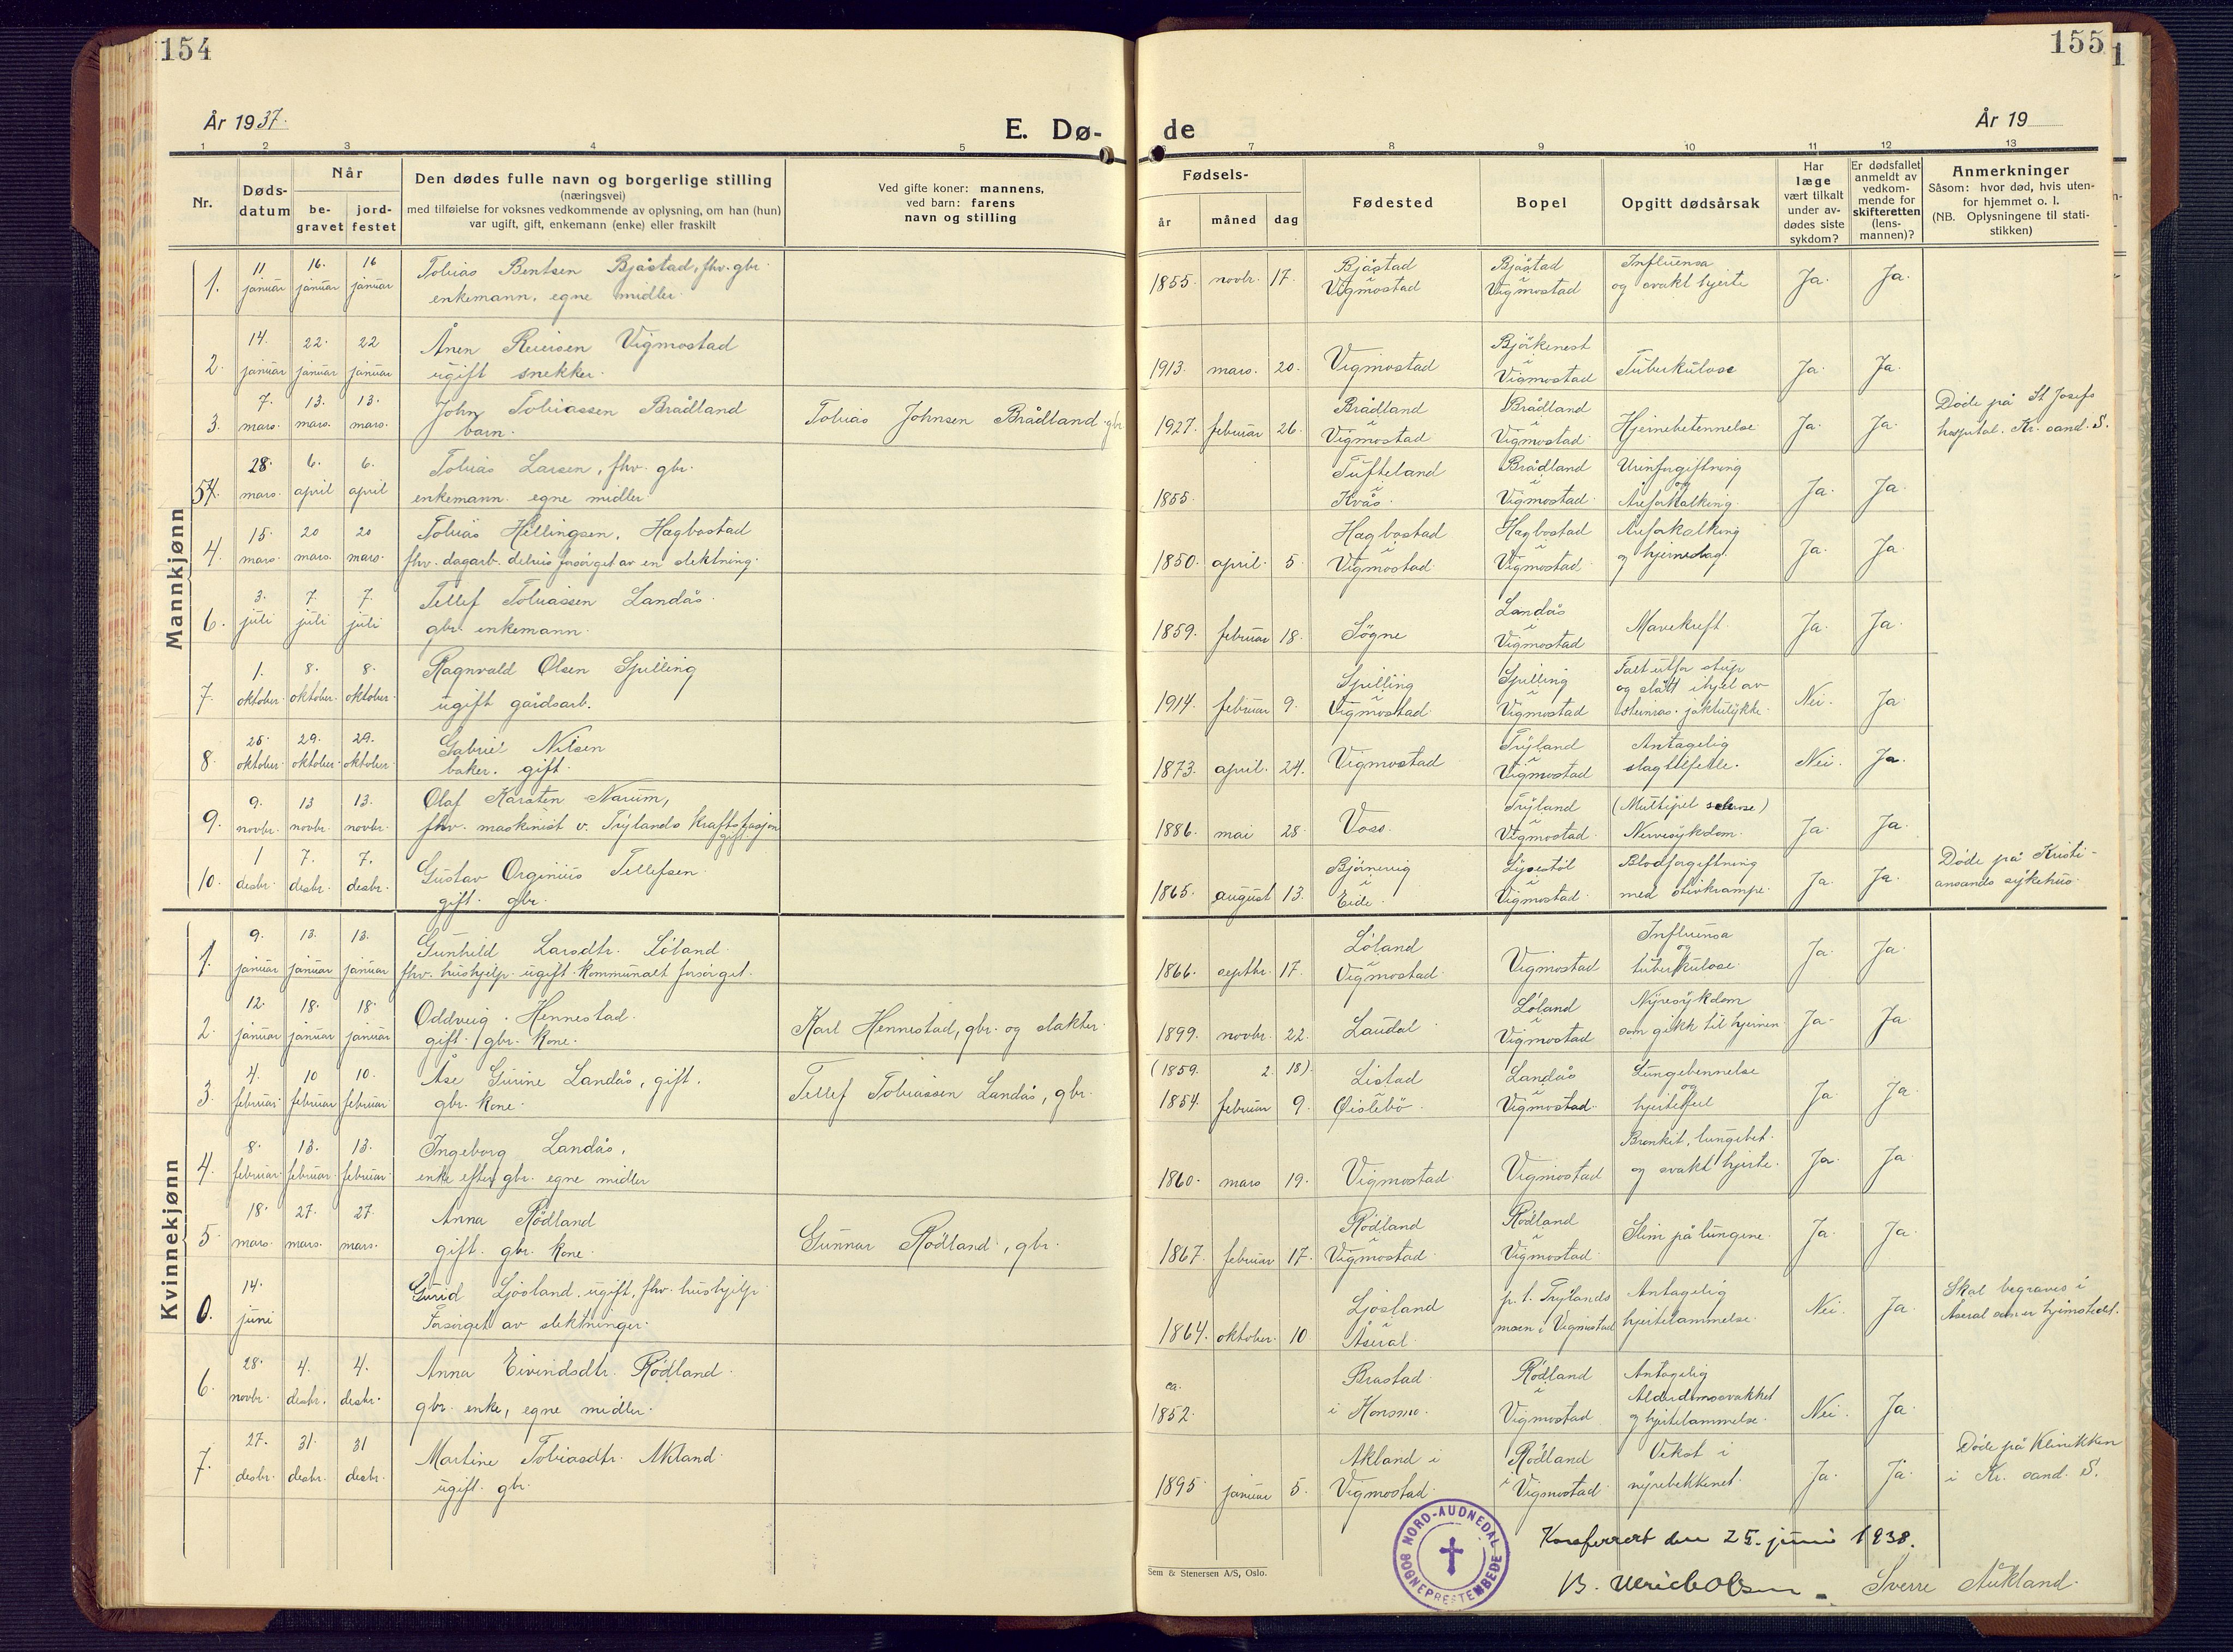 154
155
År 1937.
E. Dø-
de
År 19
1 2 3 4 5
7 8 9 10 11 12 13
Nr.
Døds-
datum
Når
be-
gravet
jord-
festet
Den dødes fulle navn og borgerlige stilling
(næringsvei)
med tilføielse for voksnes vedkommende av oplysning, om han (hun)
var ugift, gift, enkemann (enke) eller fraskilt
Ved gifte koner: mannens,
ved barn: farens
navn og stilling
Fødsels-
år måned dag
Fødested
Bopel
Opgitt dødsårsak
Har
læge
vært tilkalt
under av-
dødes siste
sykdom?
Er dødsfallet
anmeldt av
vedkom-
mende for
skifteretten
(lens-
mannen)?
Anmerkninger
Såsom: hvor død, hvis uten-
for hjemmet o. l.
(NB. Oplysningene til stati-
stikken)
Mannkjønn
11 16. 16 Tobias Bentsen Bjåstad, fhv. gbr. Bjåstad Bjåstad Influensa
1. januar januar januar enkemann. egne midler. 1855. novbr. 17. i Vigmostad i Vigmostad og svakt hjerte Ja. Ja.
14. 22. 22 Ånen Reiersen Vigmostad Bjørkenest
2. januar januar januar ugift snekker. 1913. mars. 20. Vigmostad i Vigmostad Tuberkulose Ja. Ja.
7. 13. 13. John Tobiassen Brådland Tobias Johnsen Brådland. gbr. Brådland Brådland Døde på St Josefs
3. mars. mars. mars. barn. 1927. februar 26. i Vigmostad i Vigmostad. Hjernebetennelse Ja. Ja. hospital. Kr. sand. S.
28. 6. 6. Tobias Larsen, fhv. gbr. Tufteland Brådland Urinforgiftning
5. mars. april april enkemann. egne midler 1855. i Kvås. i Vigmostad. og Åreforkalking. Ja. Ja.
15. 20 20 Tobias Hellingsen, Hagbostad Hagbostad Hagbostad Åreforkalking
4. mars. mars. mars. fhv. dagarb. delvis forsörget av en slektning. 1850. april. 5. i Vigmostad. i Vigmostad. og hjerneslag. Ja. Ja.
3. 7. 7. Tellef Tobiassen Landås. Landås
6. juli juli juli gbr. enkemann. 1859. februar 18. Sögne i Vigmostad Mavekreft. Ja. Ja.
1. 8. 8. Ragnvald Olsen Spilling Spilling Spilling Falt utfor stup
og slått ihjel av
7. oktober. oktober. oktober. ugift gårdsarb. 1914. februar 9. i Vigmostad. i Vigmostad steinras. jaktulykke. Nei. Ja.
25. 29. 29. Gabriel Nilsen Tryland Antagelig
8. oktober. oktober. oktober. baker. gift. 1873. april. 24. Vigmostad i Vigmostad slagtilfelle. Nei. Ja.
9. 13 13. Olaf Karsten Narum, Tryland (Multipel sclerose)
9. novbr. novbr. novbr. fhv. maskinist v. Trylands kraftstasjon 1886. mai 28. Voss. i Vigmostad. Nervesykdom. Ja. Ja.
gift.
1 7. 7. Gustav Orginius Tellefsen. Bjørnevig Lysestöl Blodforgiftning Døde på Kristi-
10. desbr. desbr. desbr. gift. gbr. 1865. august 13. i Eide. i Vigmostad. med stivkrampe. Ja. Ja. ansands sykehus.
Kvinnekjønn
9. 13. 13. Gunhild Larsdtr. Löland. Löland Influensa
1. januar januar januar fhv. hushjelp. ugift. kommunalt forsörget. 1866. septbr. 17. i Vigmostad. Vigmostad og tuberkulose. Ja. Ja.
12. 18. 18. Oddveig Hennestad. Karl Hennestad, gbr. og slakter. Löland Nyresykdom
2. januar januar januar gift. gbr. kone. 1899. novbr. 22. Laudal. i Vigmostad som gikk til hjernen Ja. Ja.
4. 10 10. Åse Gurine Landås, gift. Tellef Tobiassen Landås, gbr. (1859. 2. 18). Listad Landås Lungebennelse
3. februar. februar februar. gbr. kone. 1854. februar 9. Øislebö. i Vigmostad. og hjertefeil Ja. Ja.
8. 13. 13. Ingeborg Landås, Bronkit, lungebet.
4. februar. februar. februar. enke efter gbr. egne midler 1860. mars 19. Vigmostad. Vigmostad og svakt hjerte. Ja. Ja.
18. 27. 27. Anna Rödland Gunnar Rödland, gbr. Rödland Rödland
5. mars. mars. mars. gift. gbr. kone. 1867. februar 17. i Vigmostad. i Vigmostad. Slim på lungene. Ja. Ja.
14. Gurid Ljösland. ugift, fhv. hushjelp Ljösland p. t. Trylands Antagelig Skal begraves i
0. juni Forsörget av slektninger. 1864. oktober. 10 i Åseral. moen i Vigmostad hjertelammelse. Nei. Ja. Åseral som er hjemstedet.
28. 4. 4. Anna Eivindsdtr. Rödland. ca. Brastad. Rödland Antagelig
Alderdomssvakhet
6. novbr. desbr. desbr. gbr. enke, egne midler. 1852. i Konsmo. i Vigmostad og hjertelammelse. Nei. Ja.
27. 31. 31 Martine Tobiasdtr. Åkland. Åkland i Rödland Vekst i Döde på Klinikken
7. desbr. desbr. desbr. ugift. gbr. 1895. januar 5. Vigmostad. i Vigmostad. nyrebekkenet. Ja. Ja. i Kr. sand. S.
Sem & Stenersen A/S, Oslo.
NORD-AUDNEDAL SOGNEPRESTEMBEDE
Konferert den 25. juni 1938.
B. Ulrich Olsen
Sverre Aukland.